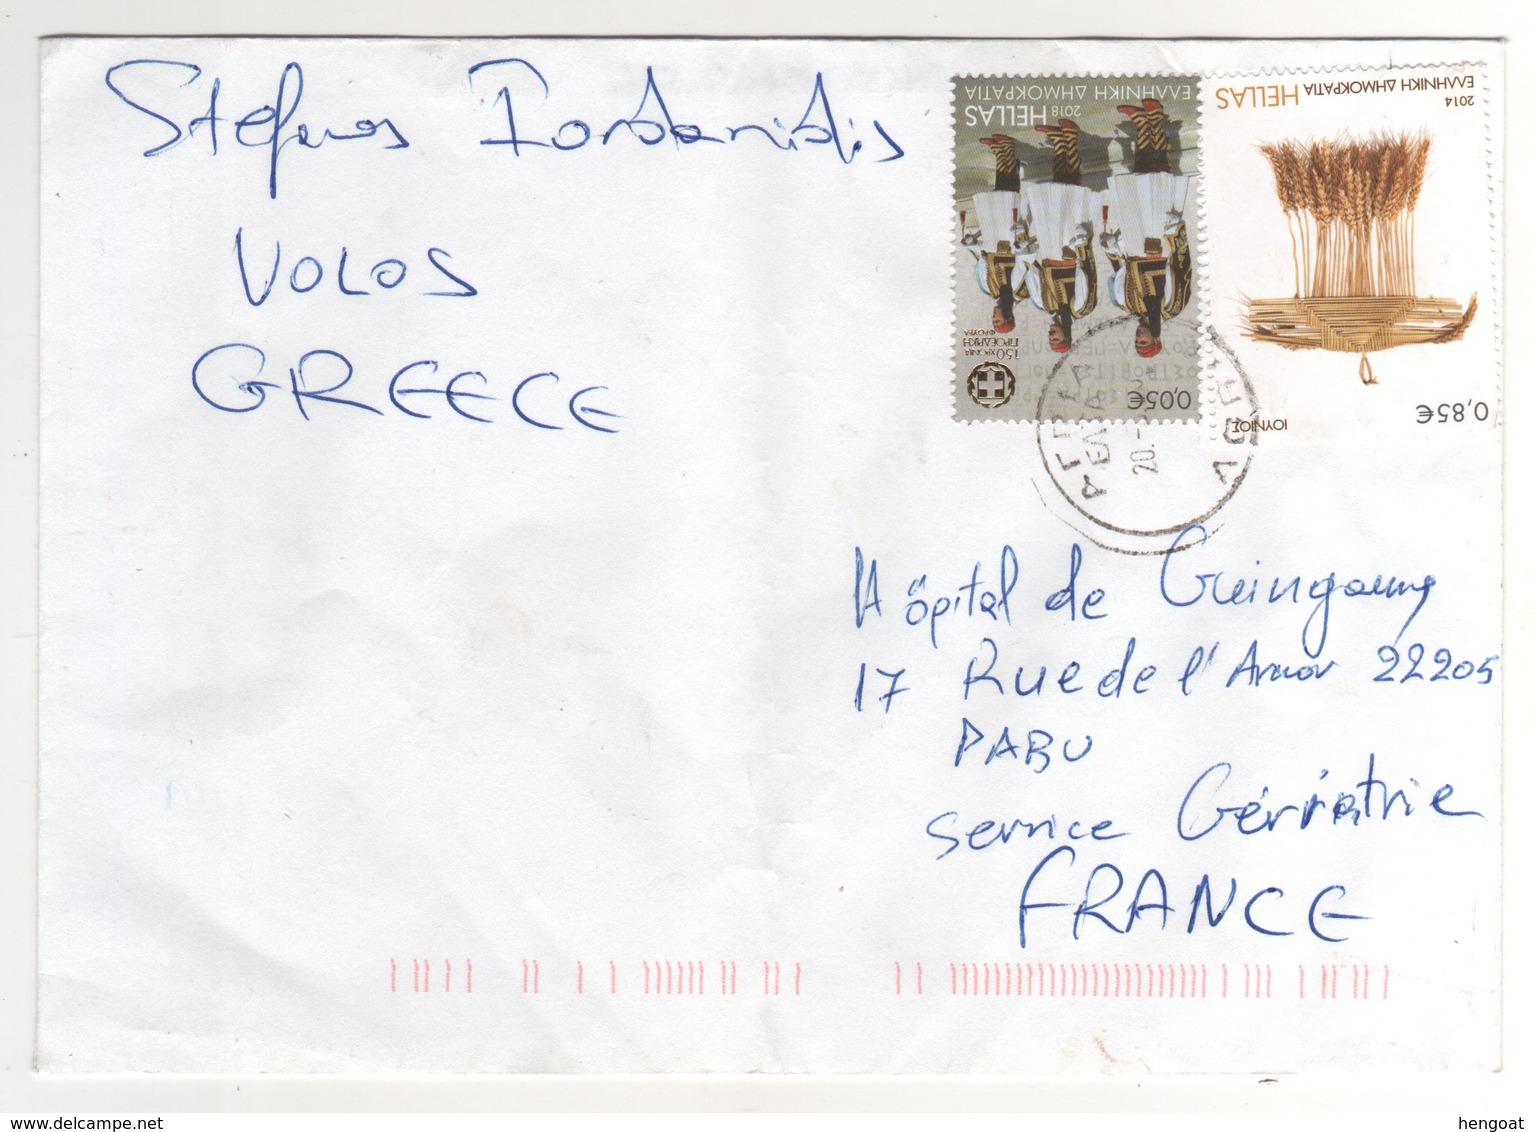 Stefanos Iordanidis
VOLOS
GREECE
ΕΛΛΗΝΙΚΗ ΔΗΜΟΚΡΑΤΙΑ
HELLAS
2018
150 ΧΡΟΝΙΑ
ΠΡΟΕΔΡΙΚΗ
ΦΡΟΥΡΑ
0,05€
2014
ΕΛΛΗΝΙΚΗ ΔΗΜΟΚΡΑΤΙΑ
HELLAS
ΙΟΥΝΙΟΣ
0,85€
20.
Hôpital de Guingamp
17 Rue de l'Armor 22205
PABU
Service Gérriatrie
FRANCE
hengoat